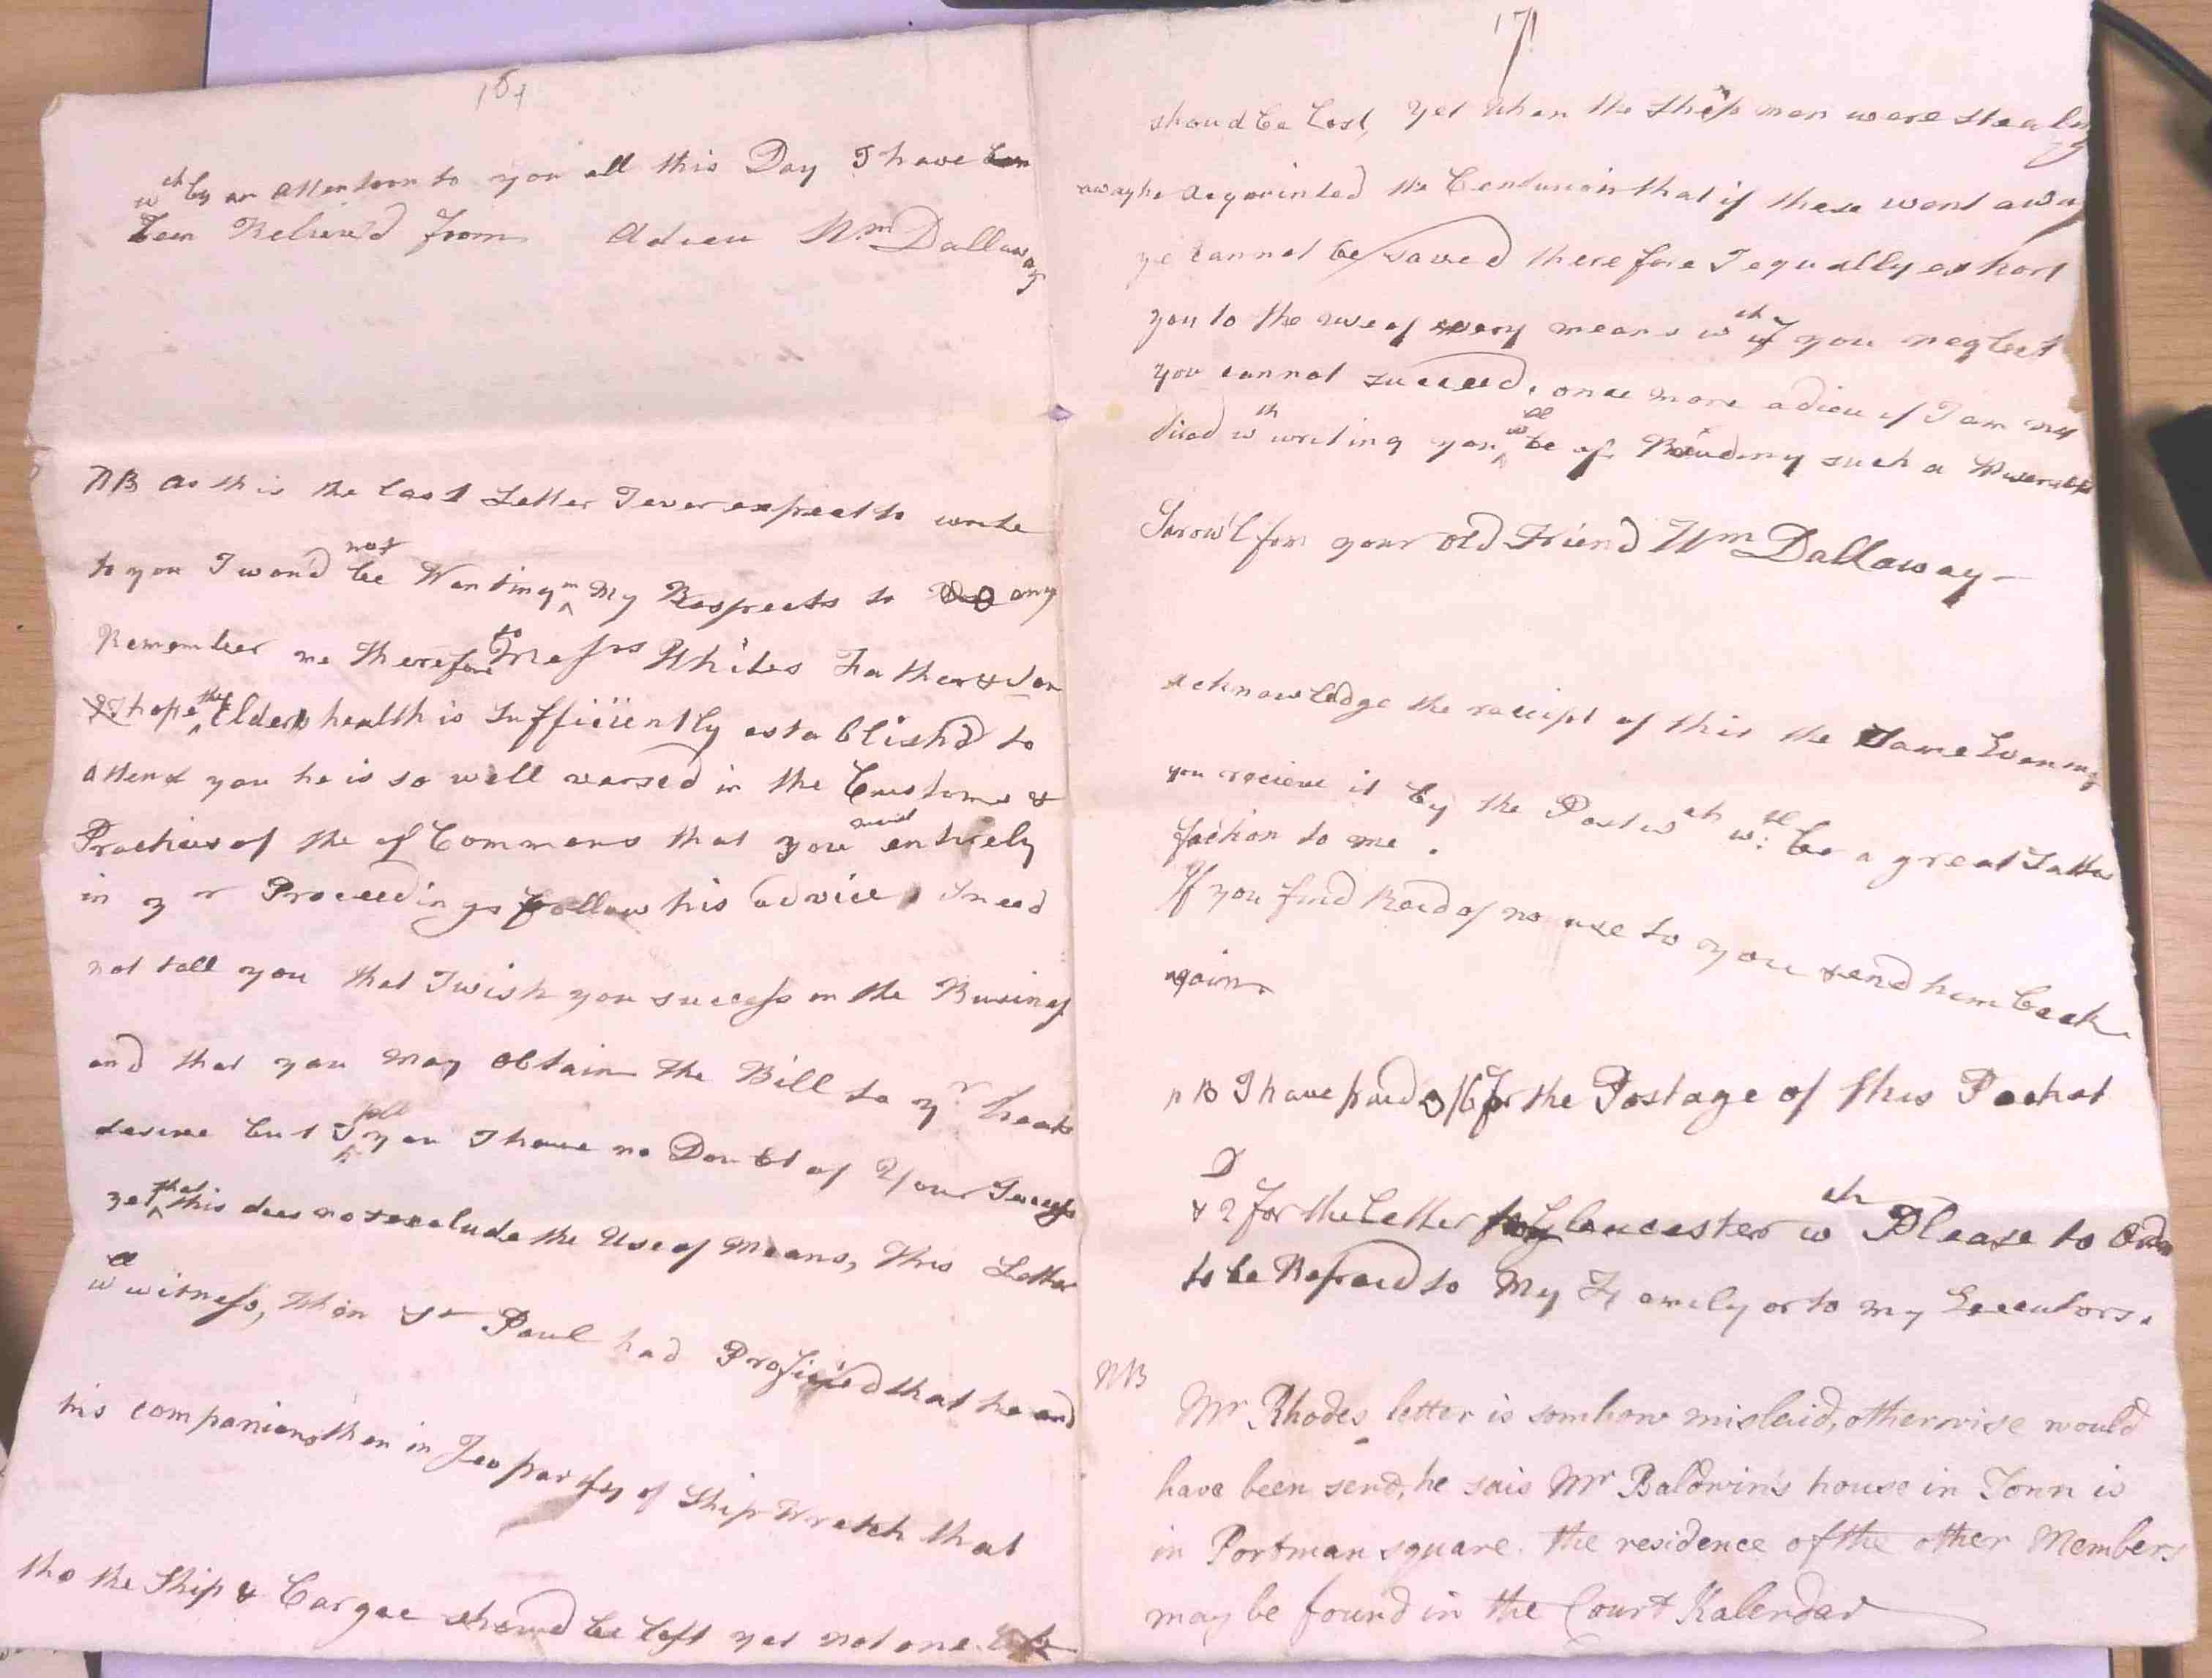 164
wch by an attention to you all this Day I have
been Reliev'd from Adieu Wm Dallaway
NB as this is the last Letter I ever expect to write
to you I wou'd not be Wanting in My Respects to any
Remember me therefore to Messrs Whites Father & Son
I hope the Elders health is sufficiently establish'd to
attend you he is so well versed in the Customs &
Practices of the of Commons that you must entirely
in yr Proceedings follow his advice, I need
not tell you that I wish you success in the Business
and that you may obtain the Bill to yr hearts
desire but I tell you I have no Doubt of Your Success
yet that this does not exclude the Use of Means, this Letter
will witness, When St Paul had Profisied that he and
his companions then in Jeopardy of Ship Wreck that
tho the Ship & Cargoe shou'd be lost yet not one
171
shoud be Lost, yet when the Ship men were stealing
away he acquainted the Centurion that if these went away
ye cannot be saved therefore I equally exhort
you to the use of every means wch if you neglect
you cannot succeed. once more adieu if I am not
tired wth writing you will be of Reading such a Miserable
Scrowl from your old Friend Wm Dallaway
acknowledge the receipt of this the Same Evening
you recieve it by the Post wch will be a great Satis
faction to me.
If you find Read of no use to you send him back
again
NB I have paid 3/6 for the Postage of this Packet
D
& 2 for the Letter to Gloucester wch Please to Order
to be Repaid to My Family or to my Executors.
NB
Mr Rhodes letter is somhow mislaid, otherwise would
have been send, he sais Mr Baldwin's house in Tonn is
in Portman square. the residence of the other Members
may be found in the Court Kalendar